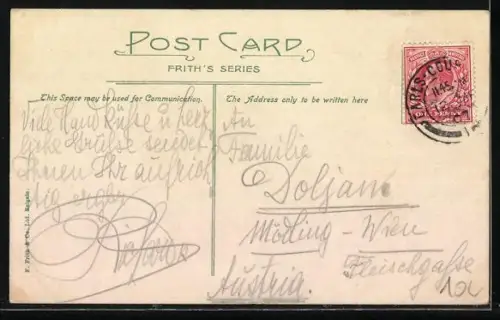 POST CARD
FRITH'S SERIES
This Space may be used for Communication.
The Address only to be written here
Viele Handküsse u herz
liche Grüsse sendet
Ihnen Ihr aufrich
tig
An
Familie
Doljan
Mödling - Wien
Fleischgasse
Austria.
EARLS-COURT
F. Frith & Co., Ltd. Reigate.